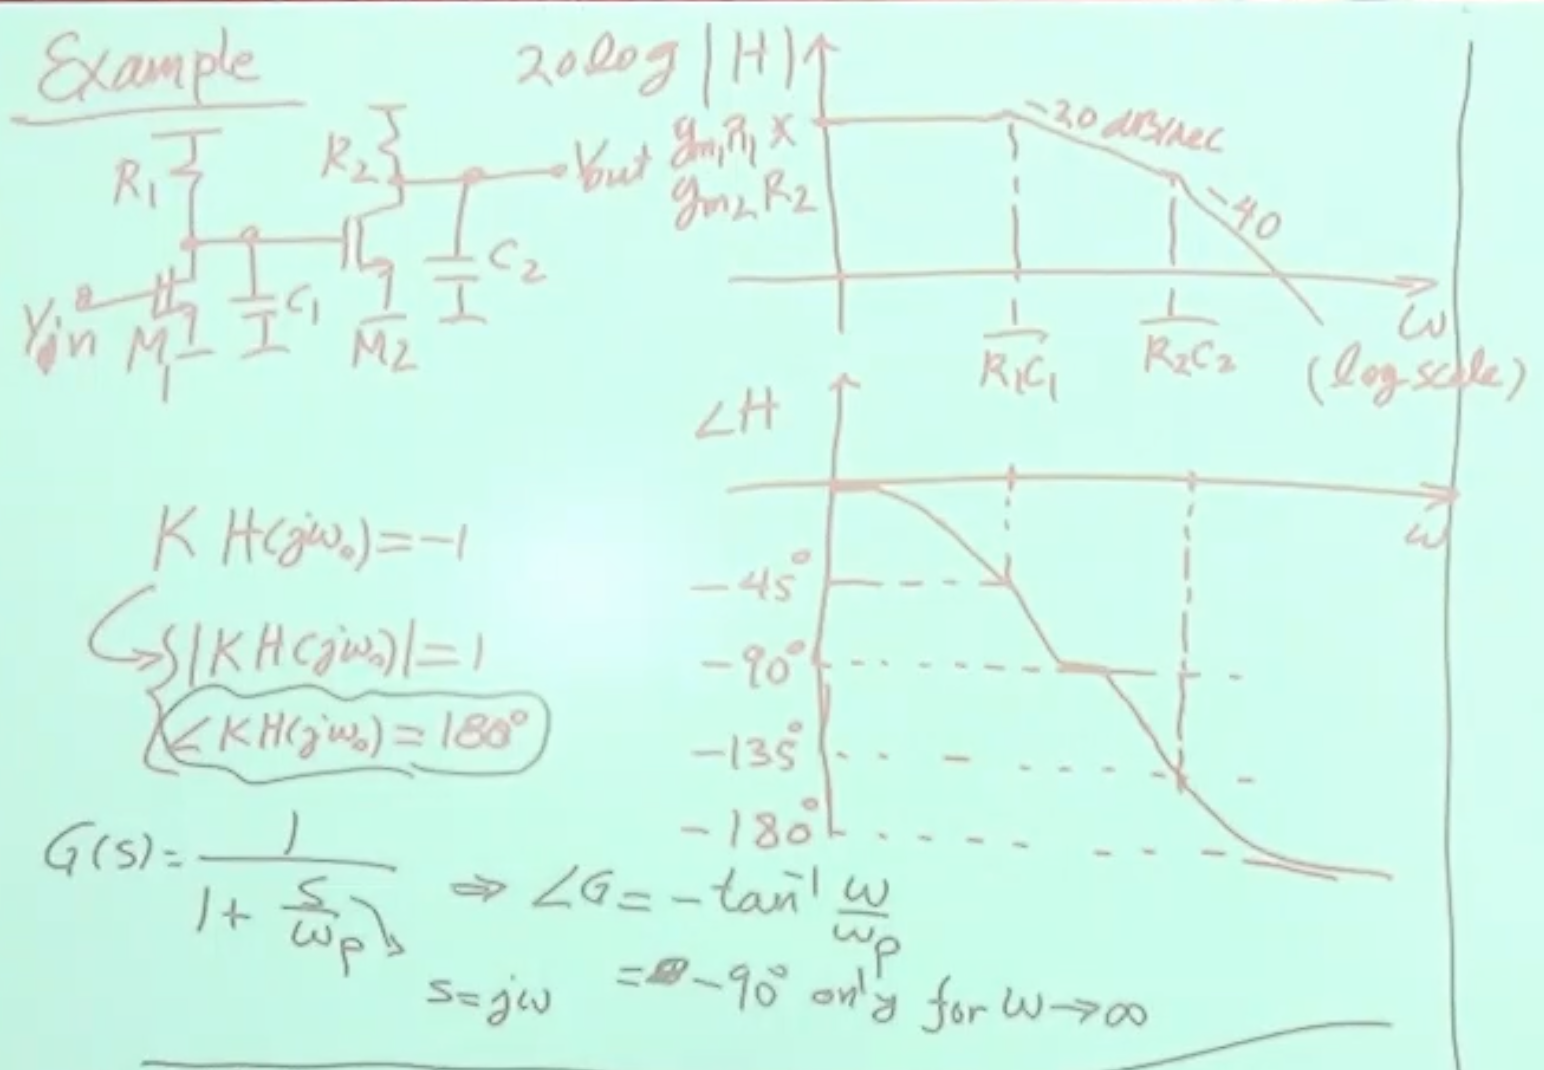 Example
R₁
R₂
Vout
C₂
C₁
Vin
M₁
M₂
20log |H|
gm₁R₁ ×
gm₂R₂
-20 dB/dec
-40
1/R₁C₁
1/R₂C₂
ω
(log scale)
∠H
ω
-45°
-90°
-135°
-180°
K H(jω₀) = -1
|K H(jω₀)| = 1
∠KH(jω₀) = 180°
G(s) = 1/(1 + s/ωp) ⇒ ∠G = -tan⁻¹ ω/ωp
s=jω = -90° only for ω→∞